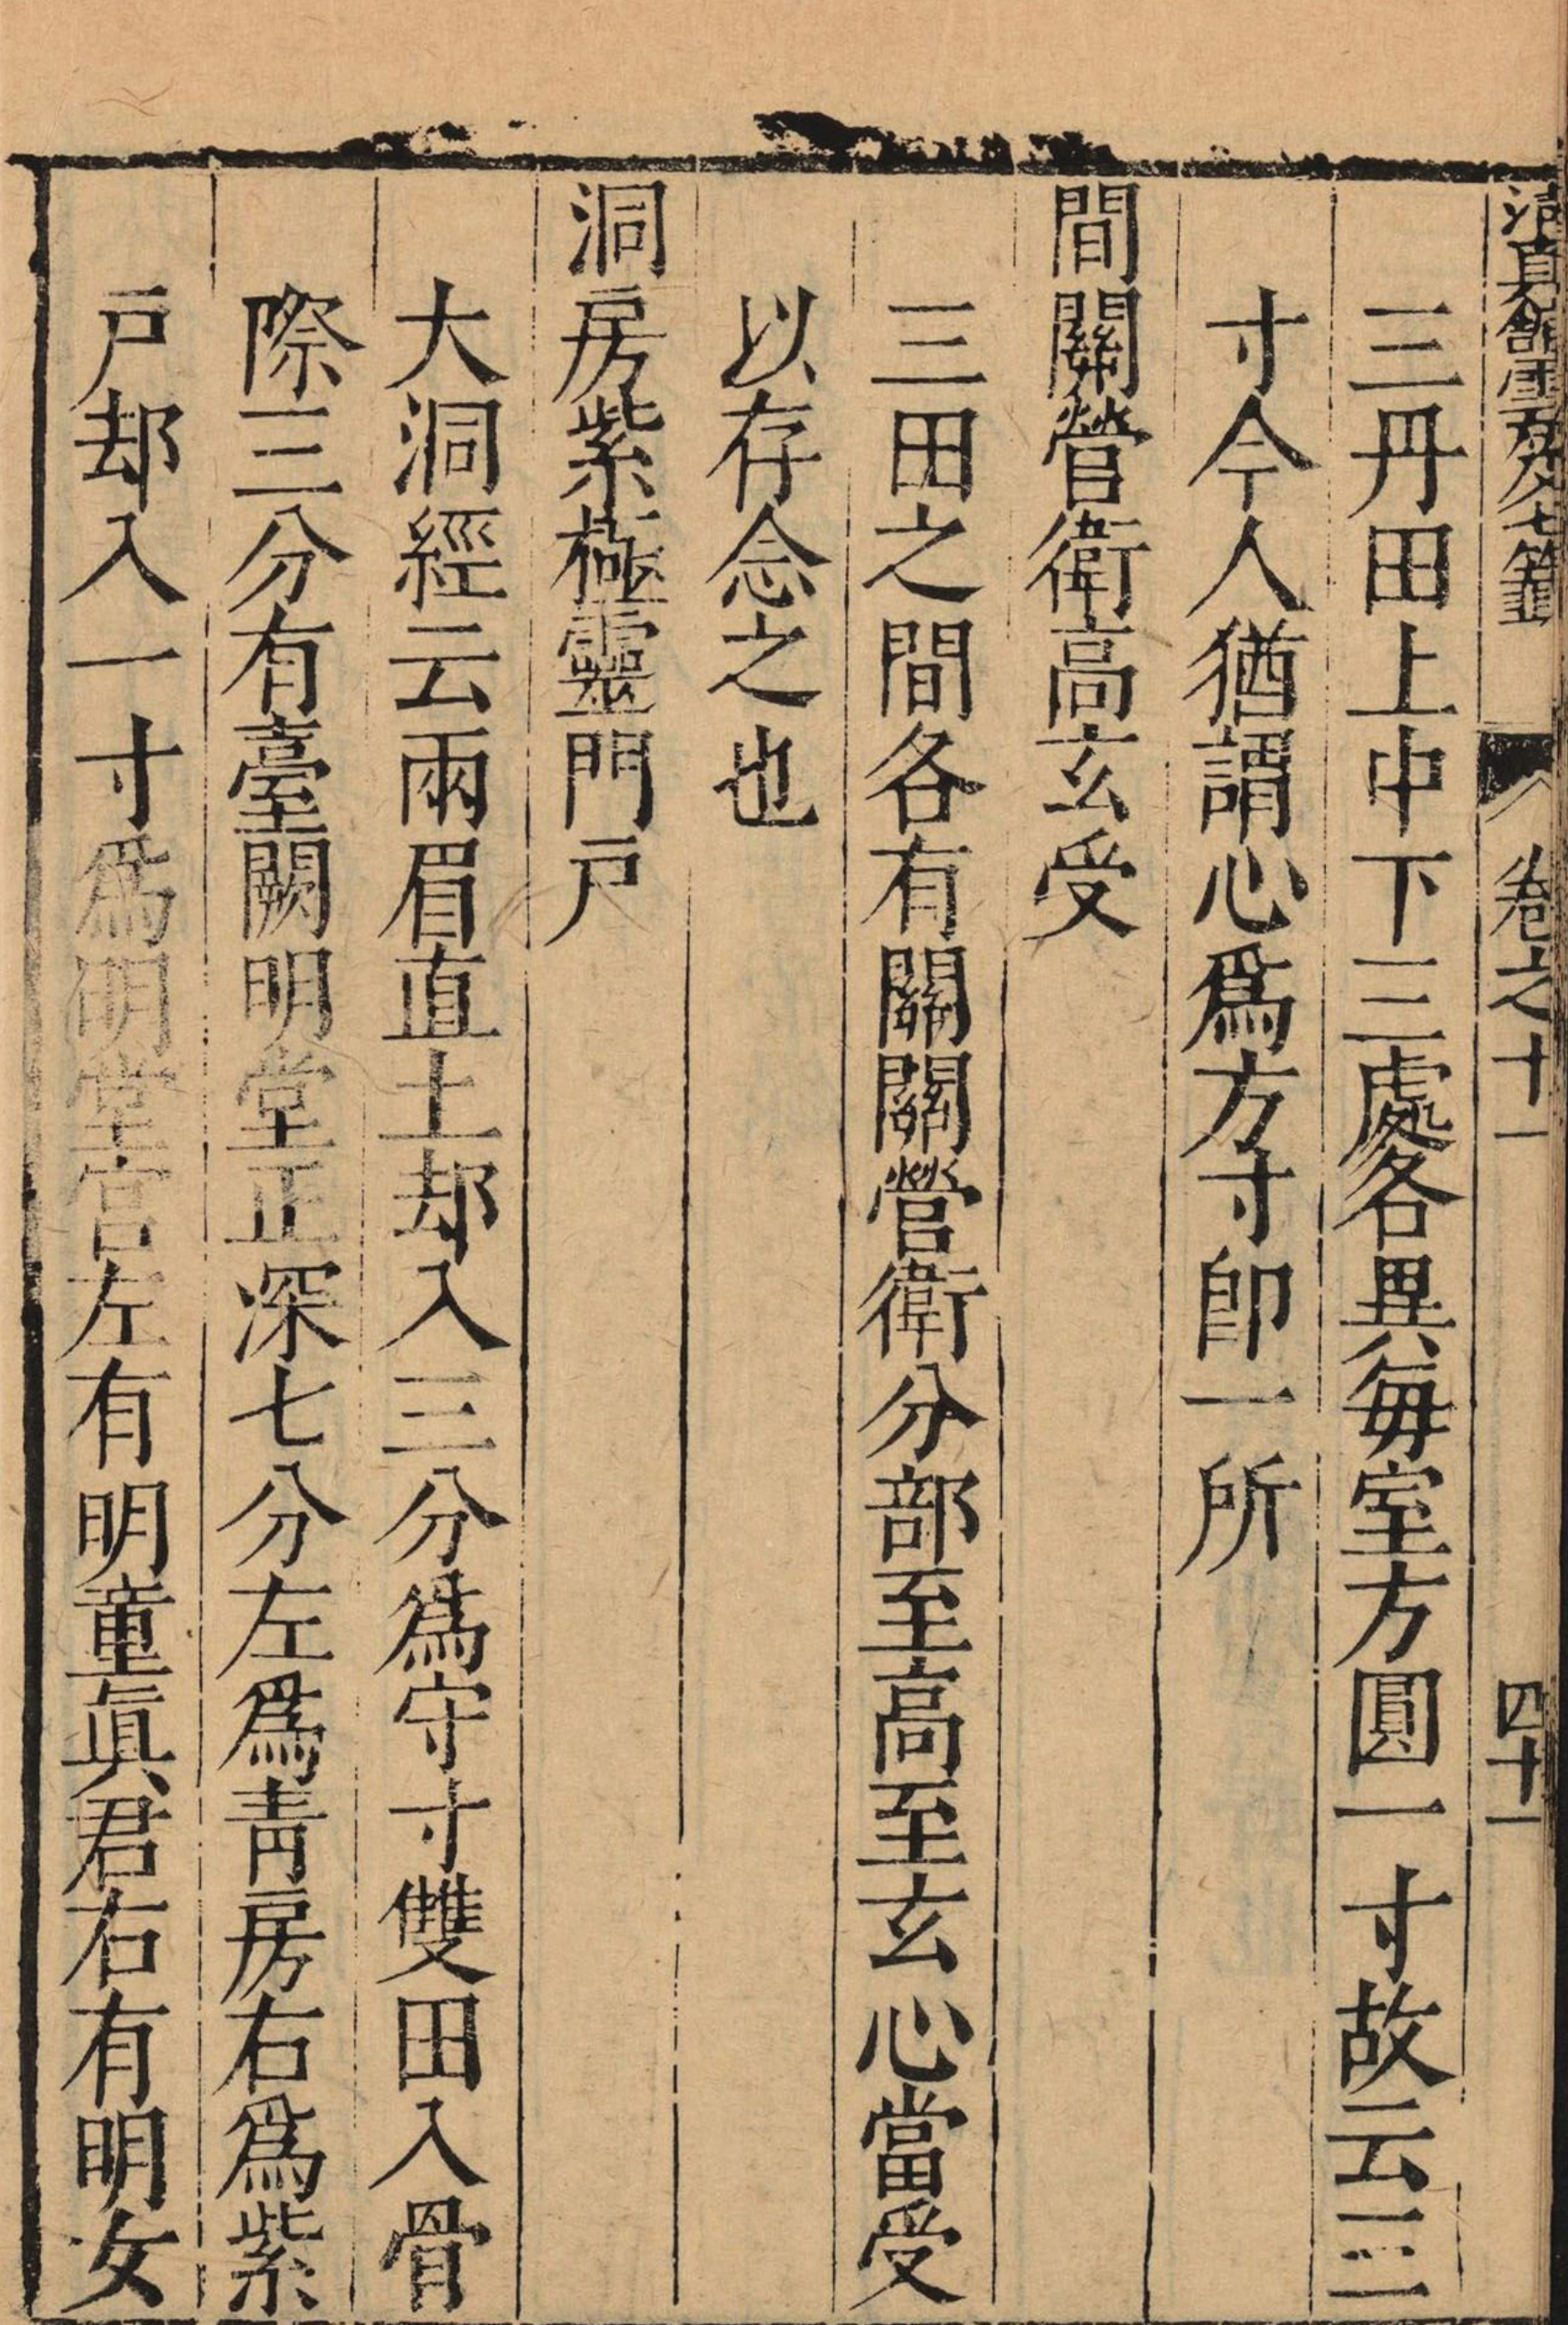 清真館雲笈七籤 卷之十一 四十一
三丹田上中下三處各異每室方圓一寸故云三
寸今人猶謂心爲方寸卽一所
間關營衛高玄受
三田之間各有關闕營衛分部至高至玄心當受
以存念之也
洞房紫極靈門戶
大洞經云兩眉直上却入三分爲守寸雙田入骨
際三分有臺闕明堂正深七分左爲青房右爲紫
戶却入一寸爲明堂宮左有明童眞君右有明女